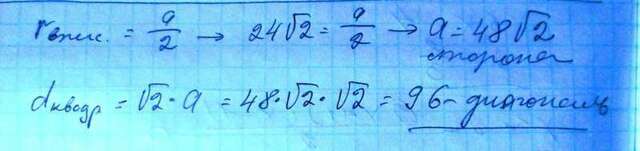 rвпис. = a/2 → 24√2 = a/2 → a = 48√2
сторона
dквадр = √2·a = 48·√2·√2 = 96 - диагональ